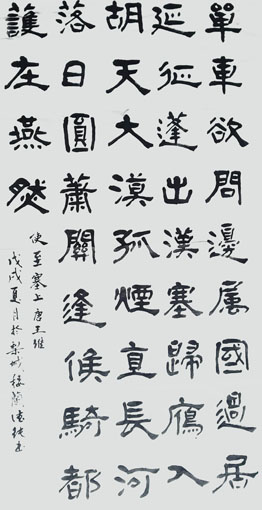 單車欲問邊属國過居
延征蓬出漢塞歸鴈入
胡天大漠孤煙直長河
落日圓蕭關逢候騎都
護在燕然
使至塞上唐王維
戊戌夏月於梨城